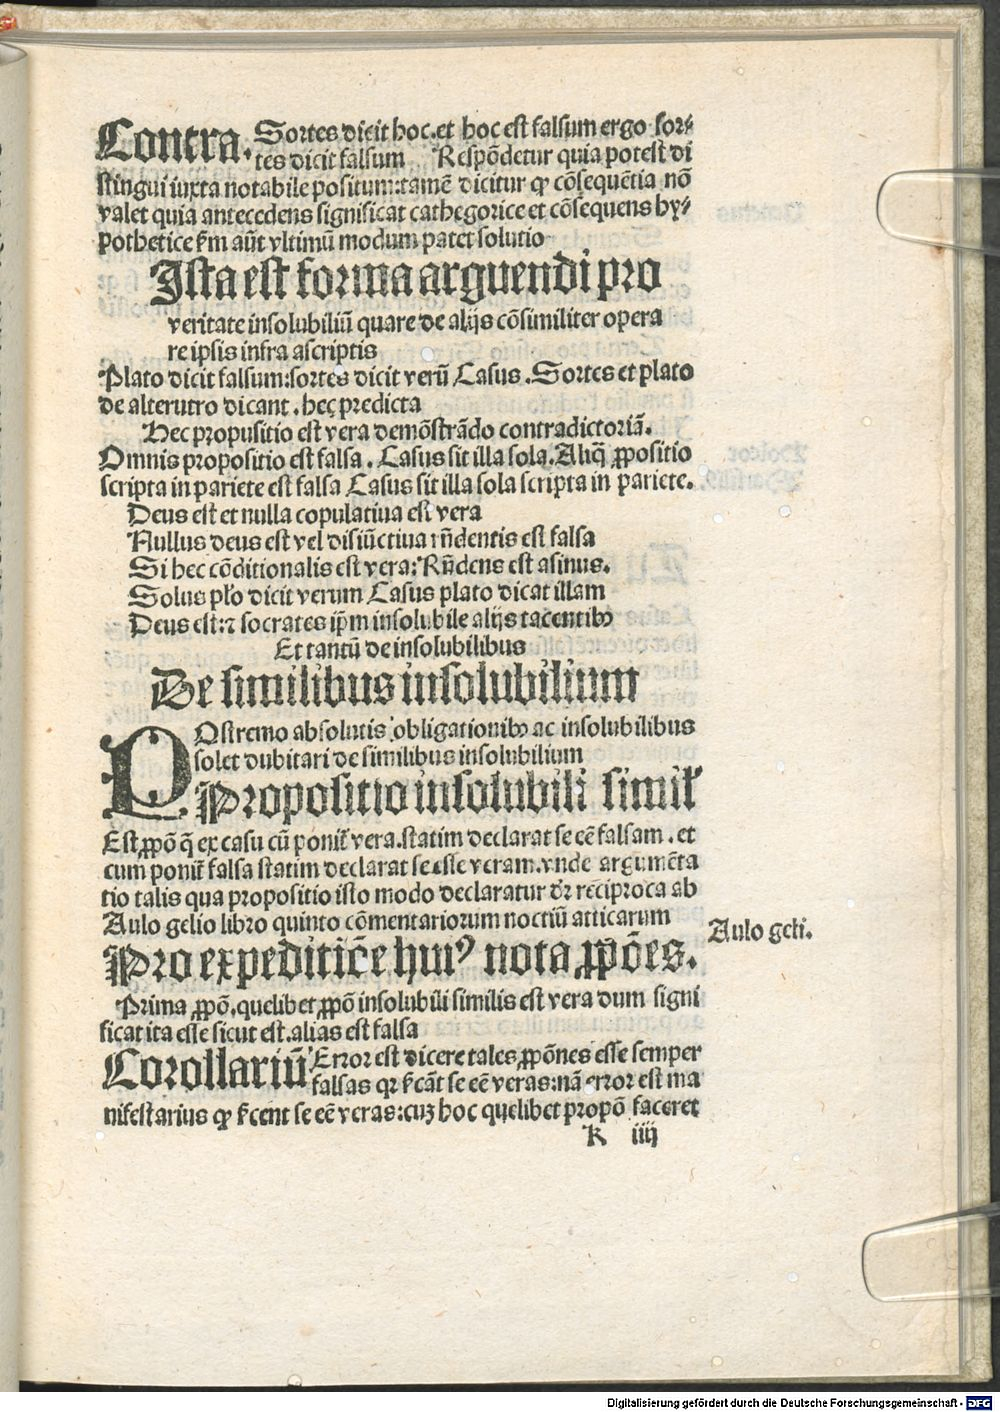 Contra. Sortes dicit hoc. et hoc est falsum ergo sor⸗
tes dicit falsum Respōdetur quia potest di
stingui iuxta notabile positum: tamē dicitur ꝙ cōsequētia nō
valet quia antecedens significat cathegorice et cōsequens hy⸗
pothetice k̄m aūt vltimū modum patet solutio
Ista est forma arguendi pro
veritate insolubiliū quare de alijs cōsimiliter opera
re ipsis infra ascriptis
Plato dicit falsum: sortes dicit verū Casus. Sortes et plato
de alterutro dicant. hec predicta
Hec propusitio est vera demōstrādo contradictoriā.
Omnis propositio est falsa. Casus sit illa sola. Aliq̄ ꝓpositio
scripta in pariete est falsa Casus sit illa sola scripta in pariete.
Deus est et nulla copulatiua est vera
Nullus deus est vel disiūctiua rn̄dentis est falsa
Si hec cōditionalis est vera: Rn̄dens est asinus.
Solus plo dicit verum Casus plato dicat illam
Deus est: ⁊ socrates ip̄m insolubile alijs tacentibꝫ
Et tantū de insolubilibus
De similibus insolubilium
POstremo absolutis obligationibꝫ ac insolubilibus
solet dubitari de similibus insolubilium
Propositio insolubili simil'
Est ꝓpō q̄ ex casu cū ponit' vera. statim declarat se eē falsam. et
cum ponit' falsa statim declarat se esse veram. vnde argumēta
tio talis qua propositio isto modo declaratur dr̄ reciproca ab
Aulo gelio libro quinto cōmentariorum noctiū atticarum
Aulo geli.
Pro expeditiōe huiꝰ nota ꝓpōes.
Prima ꝓpō. quelibet ꝓpō insolubili similis est vera dum signi
ficat ita esse sicut est. alias est falsa
Corollariū Error est dicere tales ꝓpōnes esse semper
falsas qꝛ k̄cāt se eē veras: nā error est ma
nifestarius ꝙ k̄cent se eē veras: cuꝫ hoc quelibet propō faceret
k iiij
Digitalisierung gefördert durch die Deutsche Forschungsgemeinschaft - DFG